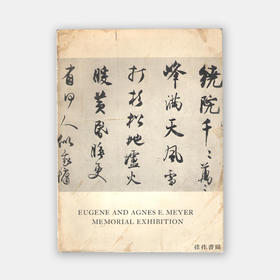 繞院千々萬々
峰滿天風雪
打杉松地爐火
暖黃昏睡更
有何人似我慵
EUGENE AND AGNES E. MEYER
MEMORIAL EXHIBITION